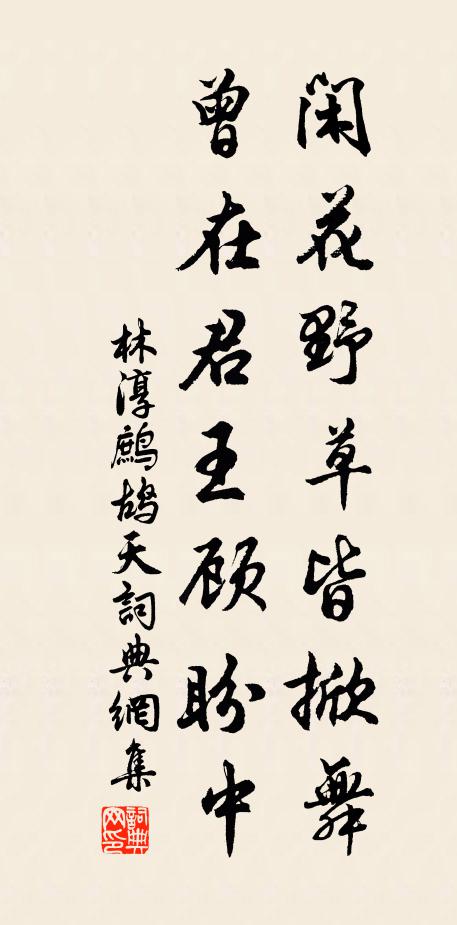 閑花野草皆掀舞
曾在君王顧盼中
林淳鷓鴣天詞典網集
詞典网印